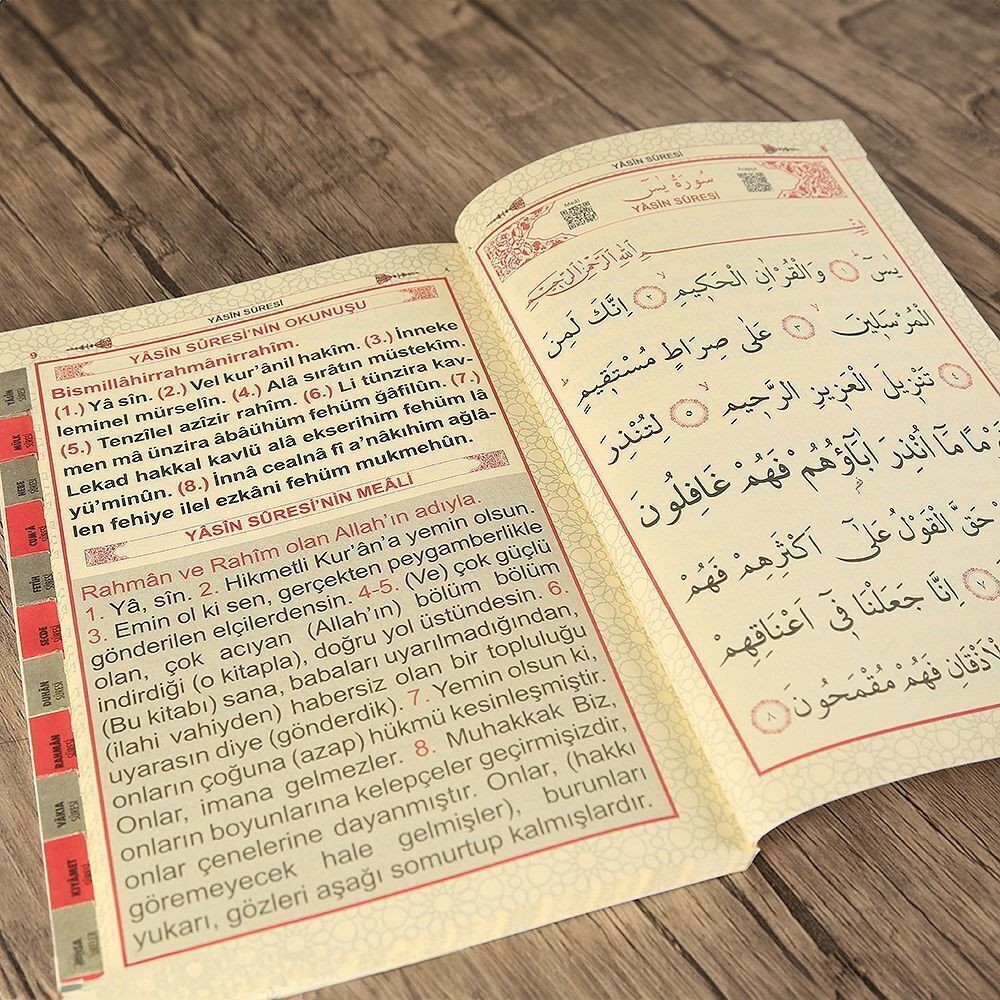 YÂSÎN SÛRESİ
9
YÂSÎN SÛRESİ'NİN OKUNUŞU
Bismillâhirrahmânirrahîm.
(1.) Yâ sîn. (2.) Vel kur'ânil hakîm. (3.) İnneke
leminel mürselîn. (4.) Alâ sırâtın müstekîm.
(5.) Tenzîlel azîzir rahîm. (6.) Li tünzira kav-
men mâ ünzira âbâühüm fehüm ğâfilûn. (7.)
Lekad hakkal kavlü alâ ekserihim fehüm lâ
yü'minûn. (8.) İnnâ cealnâ fî a'nâkıhim ağlâ-
len fehiye ilel ezkâni fehüm mukmehûn.
YÂSÎN SÛRESİ'NİN MEÂLİ
Rahmân ve Rahîm olan Allah'ın adıyla.
1. Yâ, sîn. 2. Hikmetli Kur'ân'a yemin olsun.
3. Emin ol ki sen, gerçekten peygamberlikle
gönderilen elçilerdensin. 4-5. (Ve) çok güçlü
olan, çok acıyan (Allah'ın) bölüm bölüm
indirdiği (o kitapla), doğru yol üstündesin. 6.
(Bu kitabı) sana, babaları uyarılmadığından,
(ilahi vahiyden) habersiz olan bir topluluğu
uyarasın diye (gönderdik). 7. Yemin olsun ki,
onların çoğuna (azap) hükmü kesinleşmiştir.
Onlar, imana gelmezler. 8. Muhakkak Biz,
onların boyunlarına kelepçeler geçirmişizdir,
onlar çenelerine dayanmıştır. Onlar, (hakkı
göremeyecek hale gelmişler), burunları
yukarı, gözleri aşağı somurtup kalmışlardır.
YÂSÎN SÛRESİ
MÜLK SÛRESİ
NEBE SÛRESİ
CUM'A SÛRESİ
FETİH SÛRESİ
SECDE SÛRESİ
DUHÂN SÛRESİ
RAHMÂN SÛRESİ
VÂKIA SÛRESİ
KIYÂMET SÛRESİ
YÂSÎN SÛRESİ
سُورَةُ يٰسٓ
YÂSÎN SÛRESİ
Meâli
Arapça
بِسْمِ اللّٰهِ الرَّحْمٰنِ الرَّحِيمِ
يٰسٓ ١ وَالْقُرْاٰنِ الْحَكِيمِ ٢ اِنَّكَ لَمِنَ
الْمُرْسَلِينَ ٣ عَلٰى صِرَاطٍ مُسْتَقِيمٍ
تَنْزِيلَ الْعَزِيزِ الرَّحِيمِ ٥ لِتُنْذِرَ
مَا اُنْذِرَ اٰبَٓاؤُهُمْ فَهُمْ غَافِلُونَ
حَقَّ الْقَوْلُ عَلٰٓى اَكْثَرِهِمْ فَهُمْ
٧ اِنَّا جَعَلْنَا فٖٓى اَعْنَاقِهِمْ
الْاَذْقَانِ فَهُمْ مُقْمَحُونَ ٨